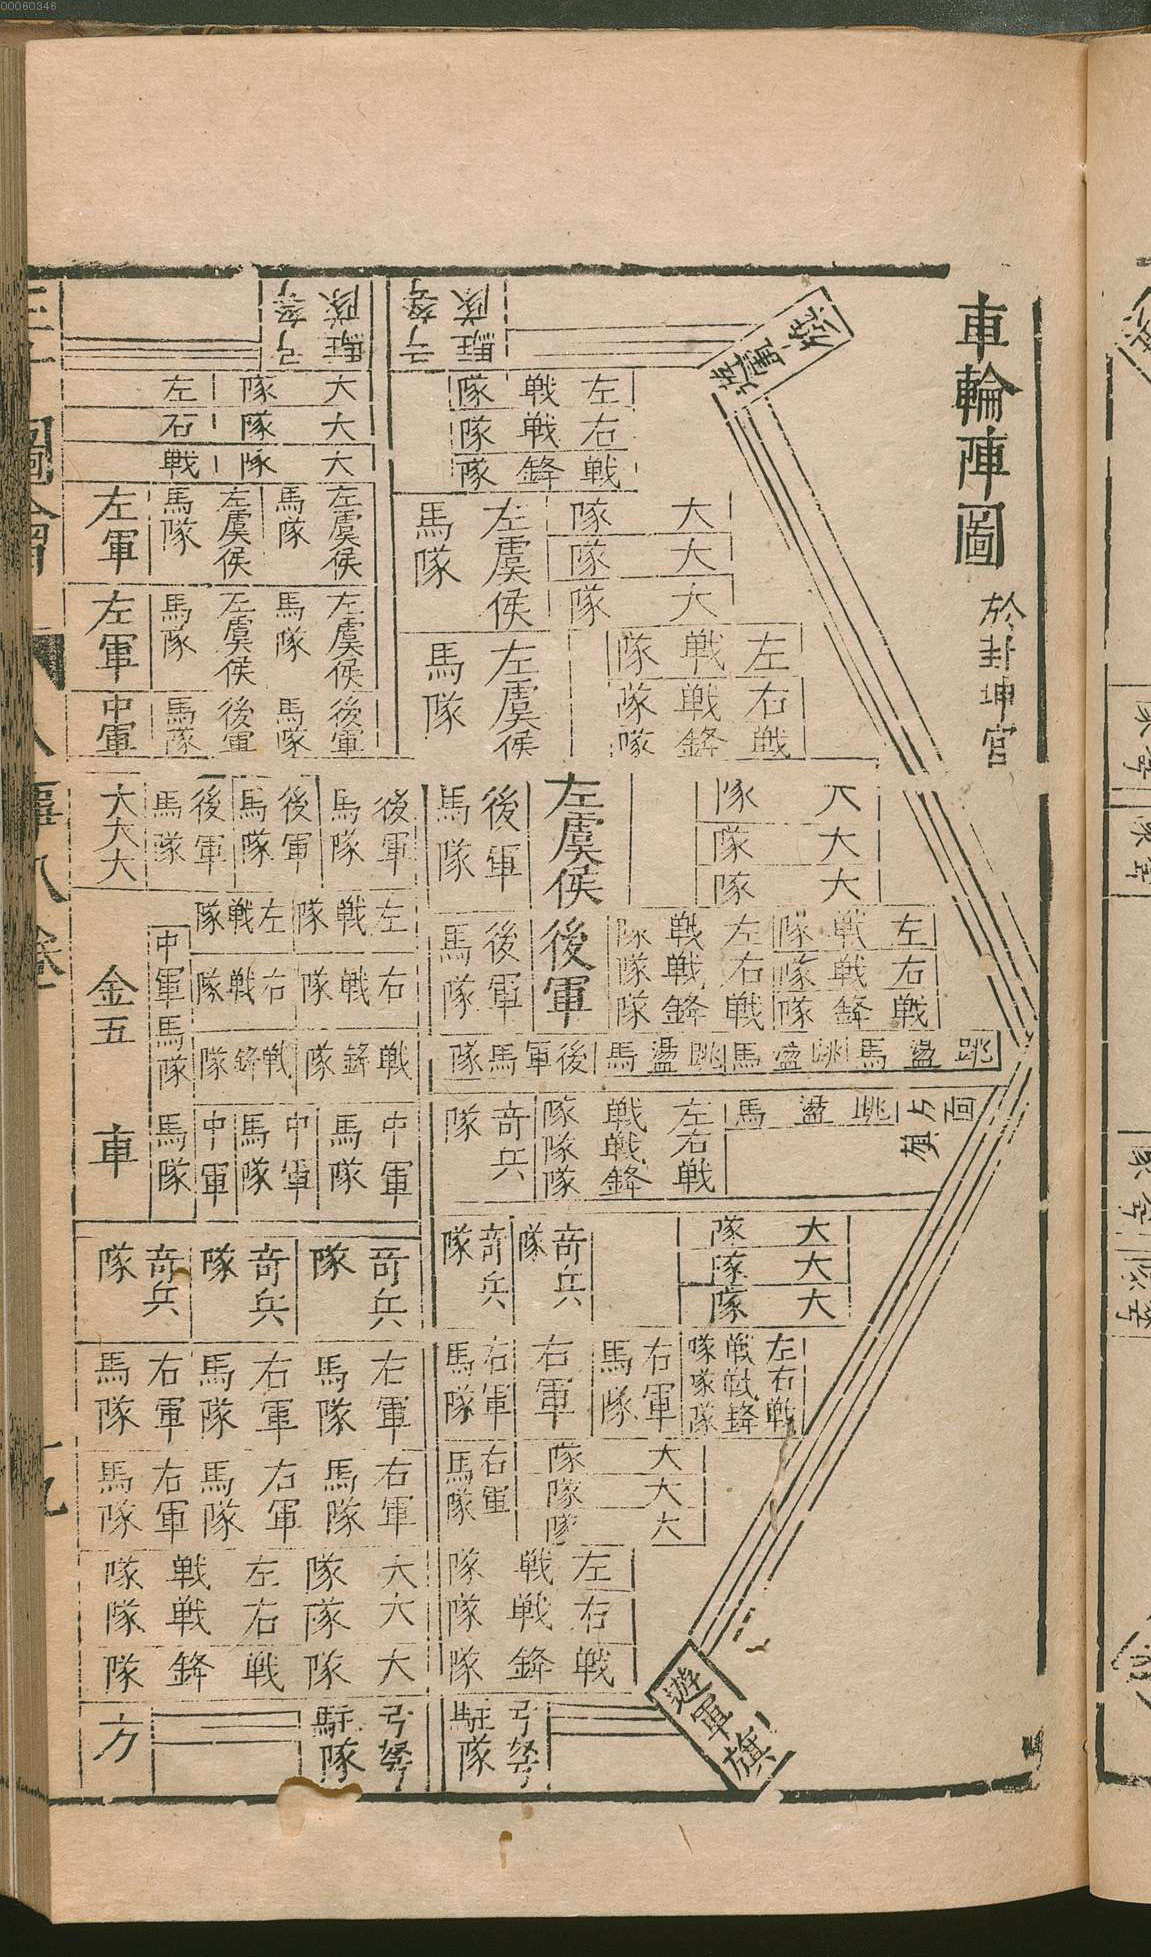 00060346
車輪陣圖 於封坤宮
遊軍旗
駐隊 弓弩
左戰隊
右戰隊
戰鋒隊
大隊
大隊
大隊
左虞候馬隊
左虞候馬隊
左戰隊
右戰隊
戰鋒隊
大隊
大隊
大隊
左虞候
後軍
後軍馬隊
後軍馬隊
左戰隊 左戰隊
右戰隊 右戰隊
戰鋒隊 戰鋒隊
跳盪馬 跳盪馬 跳盪馬 後軍馬隊
面方旗
跳盪馬
左戰隊
右戰隊
戰鋒隊
奇兵隊
大隊
大隊
大隊
奇兵隊
奇兵隊
左戰隊
右戰隊
戰鋒隊
右軍馬隊
右軍
右軍馬隊
大隊
大隊
大隊
右軍馬隊
左戰隊
右戰隊
戰鋒隊
弓弩 駐隊
遊軍旗
駐隊 弓弩
大隊 左
大隊 右
大隊 戰
左虞候馬隊 左虞候馬隊 左軍
左虞候馬隊 左虞候馬隊 左軍
後軍馬隊 後軍馬隊 中軍
後軍馬隊 後軍馬隊 後軍馬隊 大大大
左戰隊 左戰隊
右戰隊 右戰隊
戰鋒隊 戰鋒隊
中軍馬隊
金五
車
中軍馬隊 中軍馬隊 中軍馬隊
奇兵隊 奇兵隊 奇兵隊
右軍馬隊 右軍馬隊 右軍馬隊
右軍馬隊 右軍馬隊 右軍馬隊
大隊 左戰隊
大隊 右戰隊
大隊 戰鋒隊
弓弩 駐隊
方